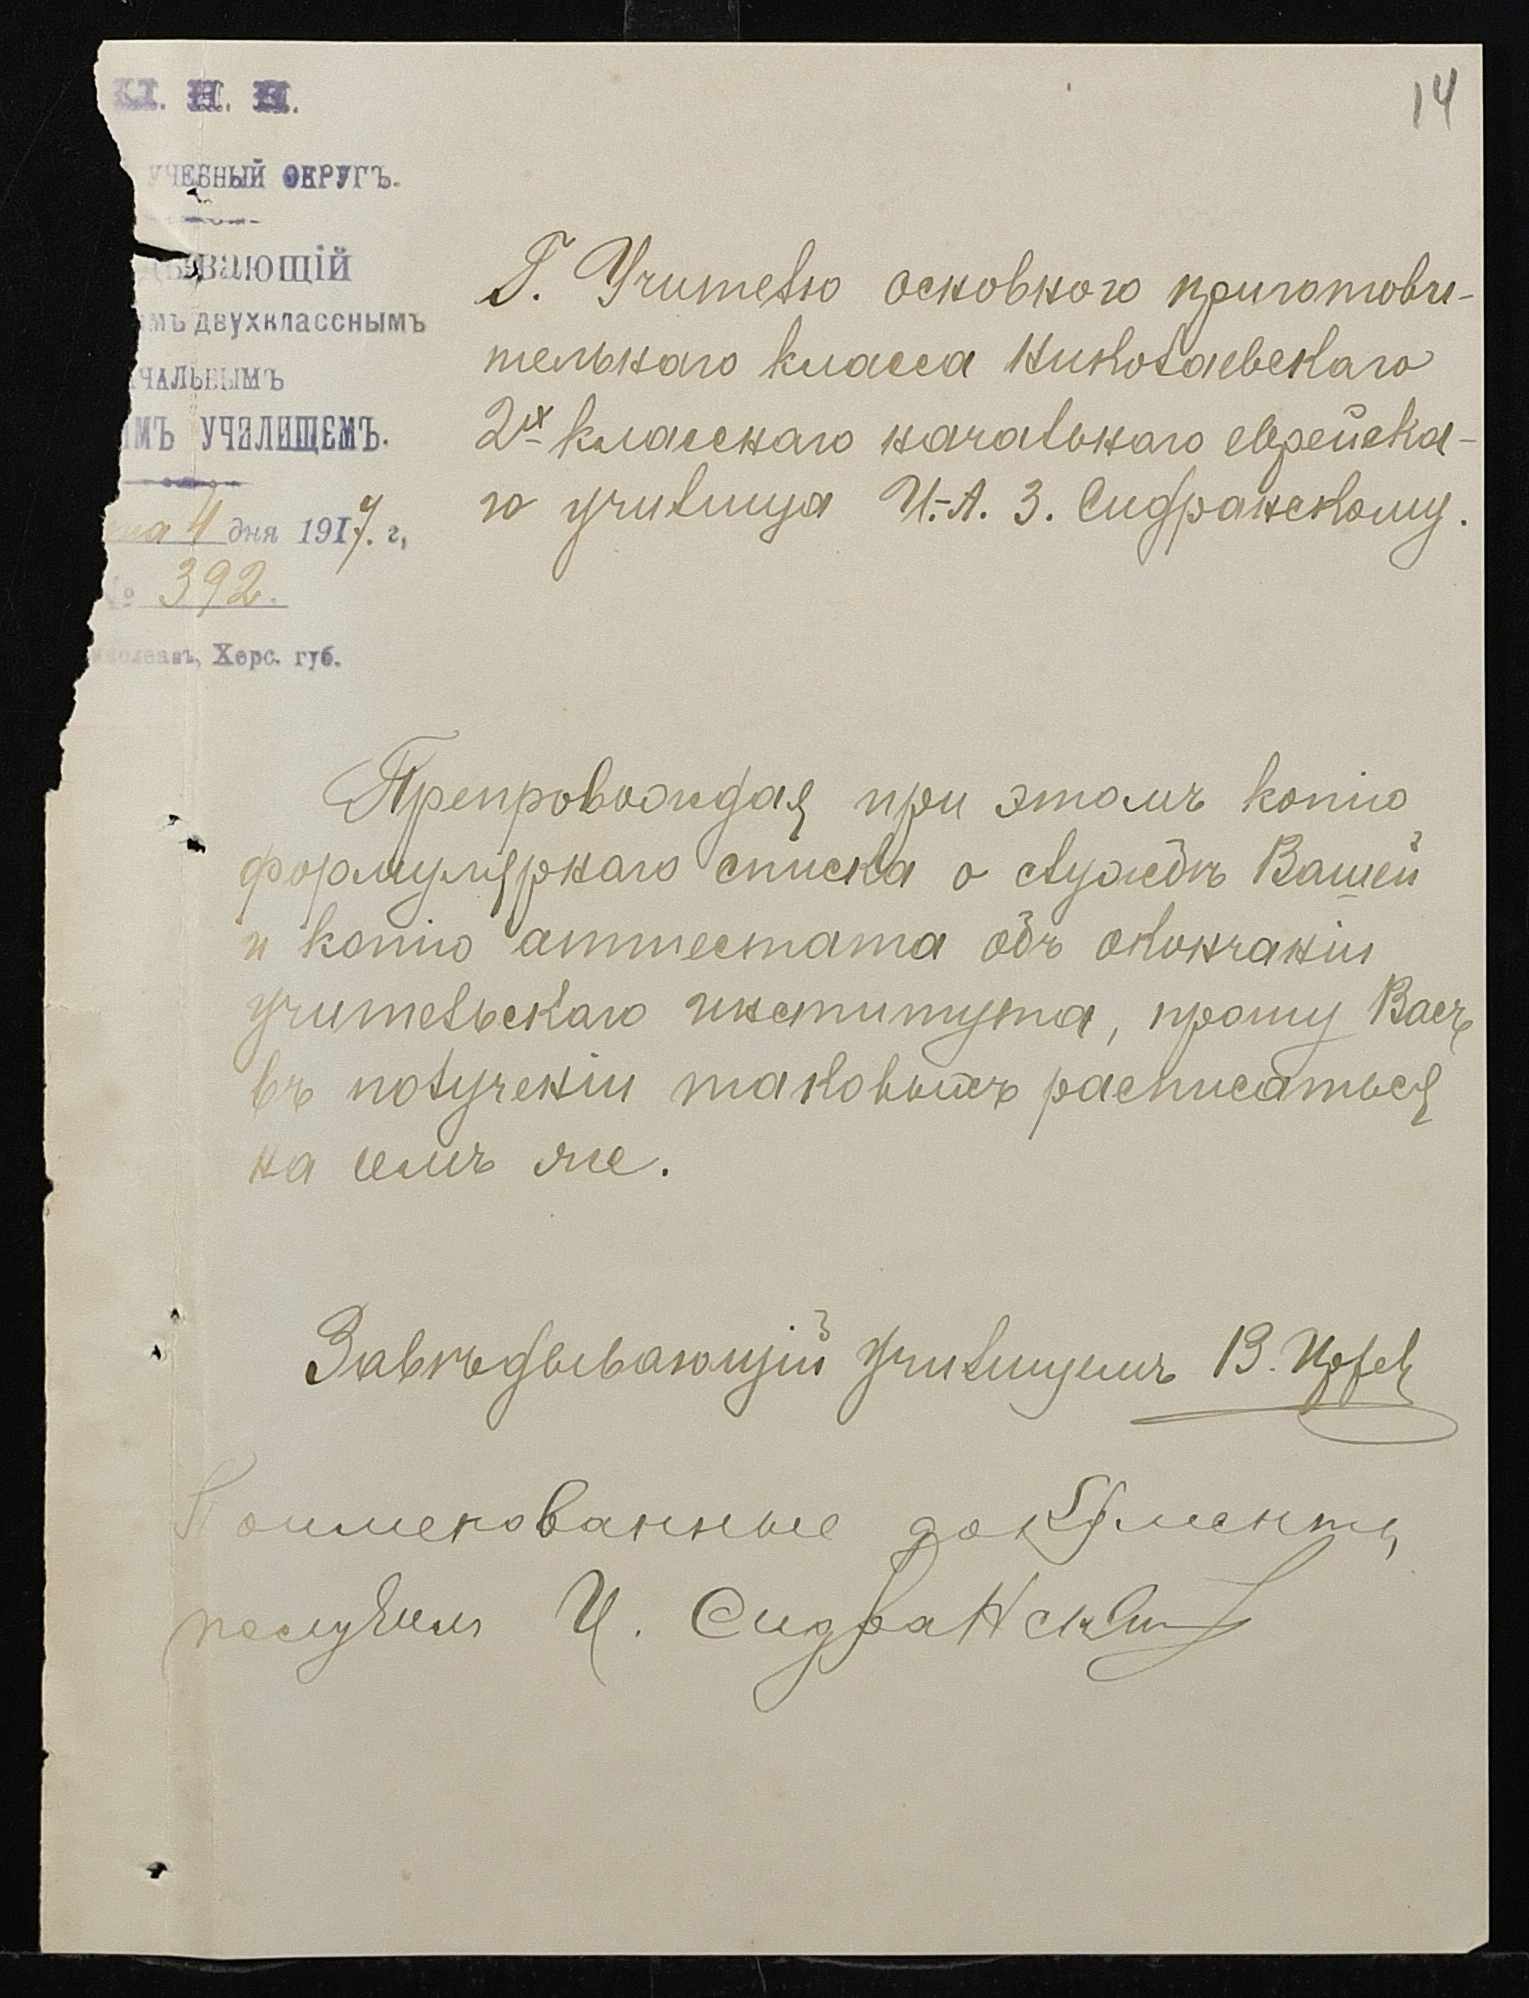 14
М. Н. П.
УЧЕБНЫЙ ОКРУГЪ.
дывающій
мъ двухкласснымъ
ЧАЛЬНЫМЪ
ИМЪ УЧИЛИЩЕМЪ.
4 дня 1917. г,
№ 392.
иколаевъ, Херс. губ.
Г. Учителю основного приготови-
тельнаго класса Николаевскаго
2х класснаго начальнаго еврейска-
го училища И.-А. З. Сидранскому.
Препровождая при этомъ копію
формулярнаго списка о службѣ Вашей
и копію аттестата объ окончаніи
учительскаго института, прошу Васъ
въ полученіи таковыхъ расписаться
на семъ же.
Завѣдывающій училищемъ В.
Поименованные документы
получилъ И. Сидранскій